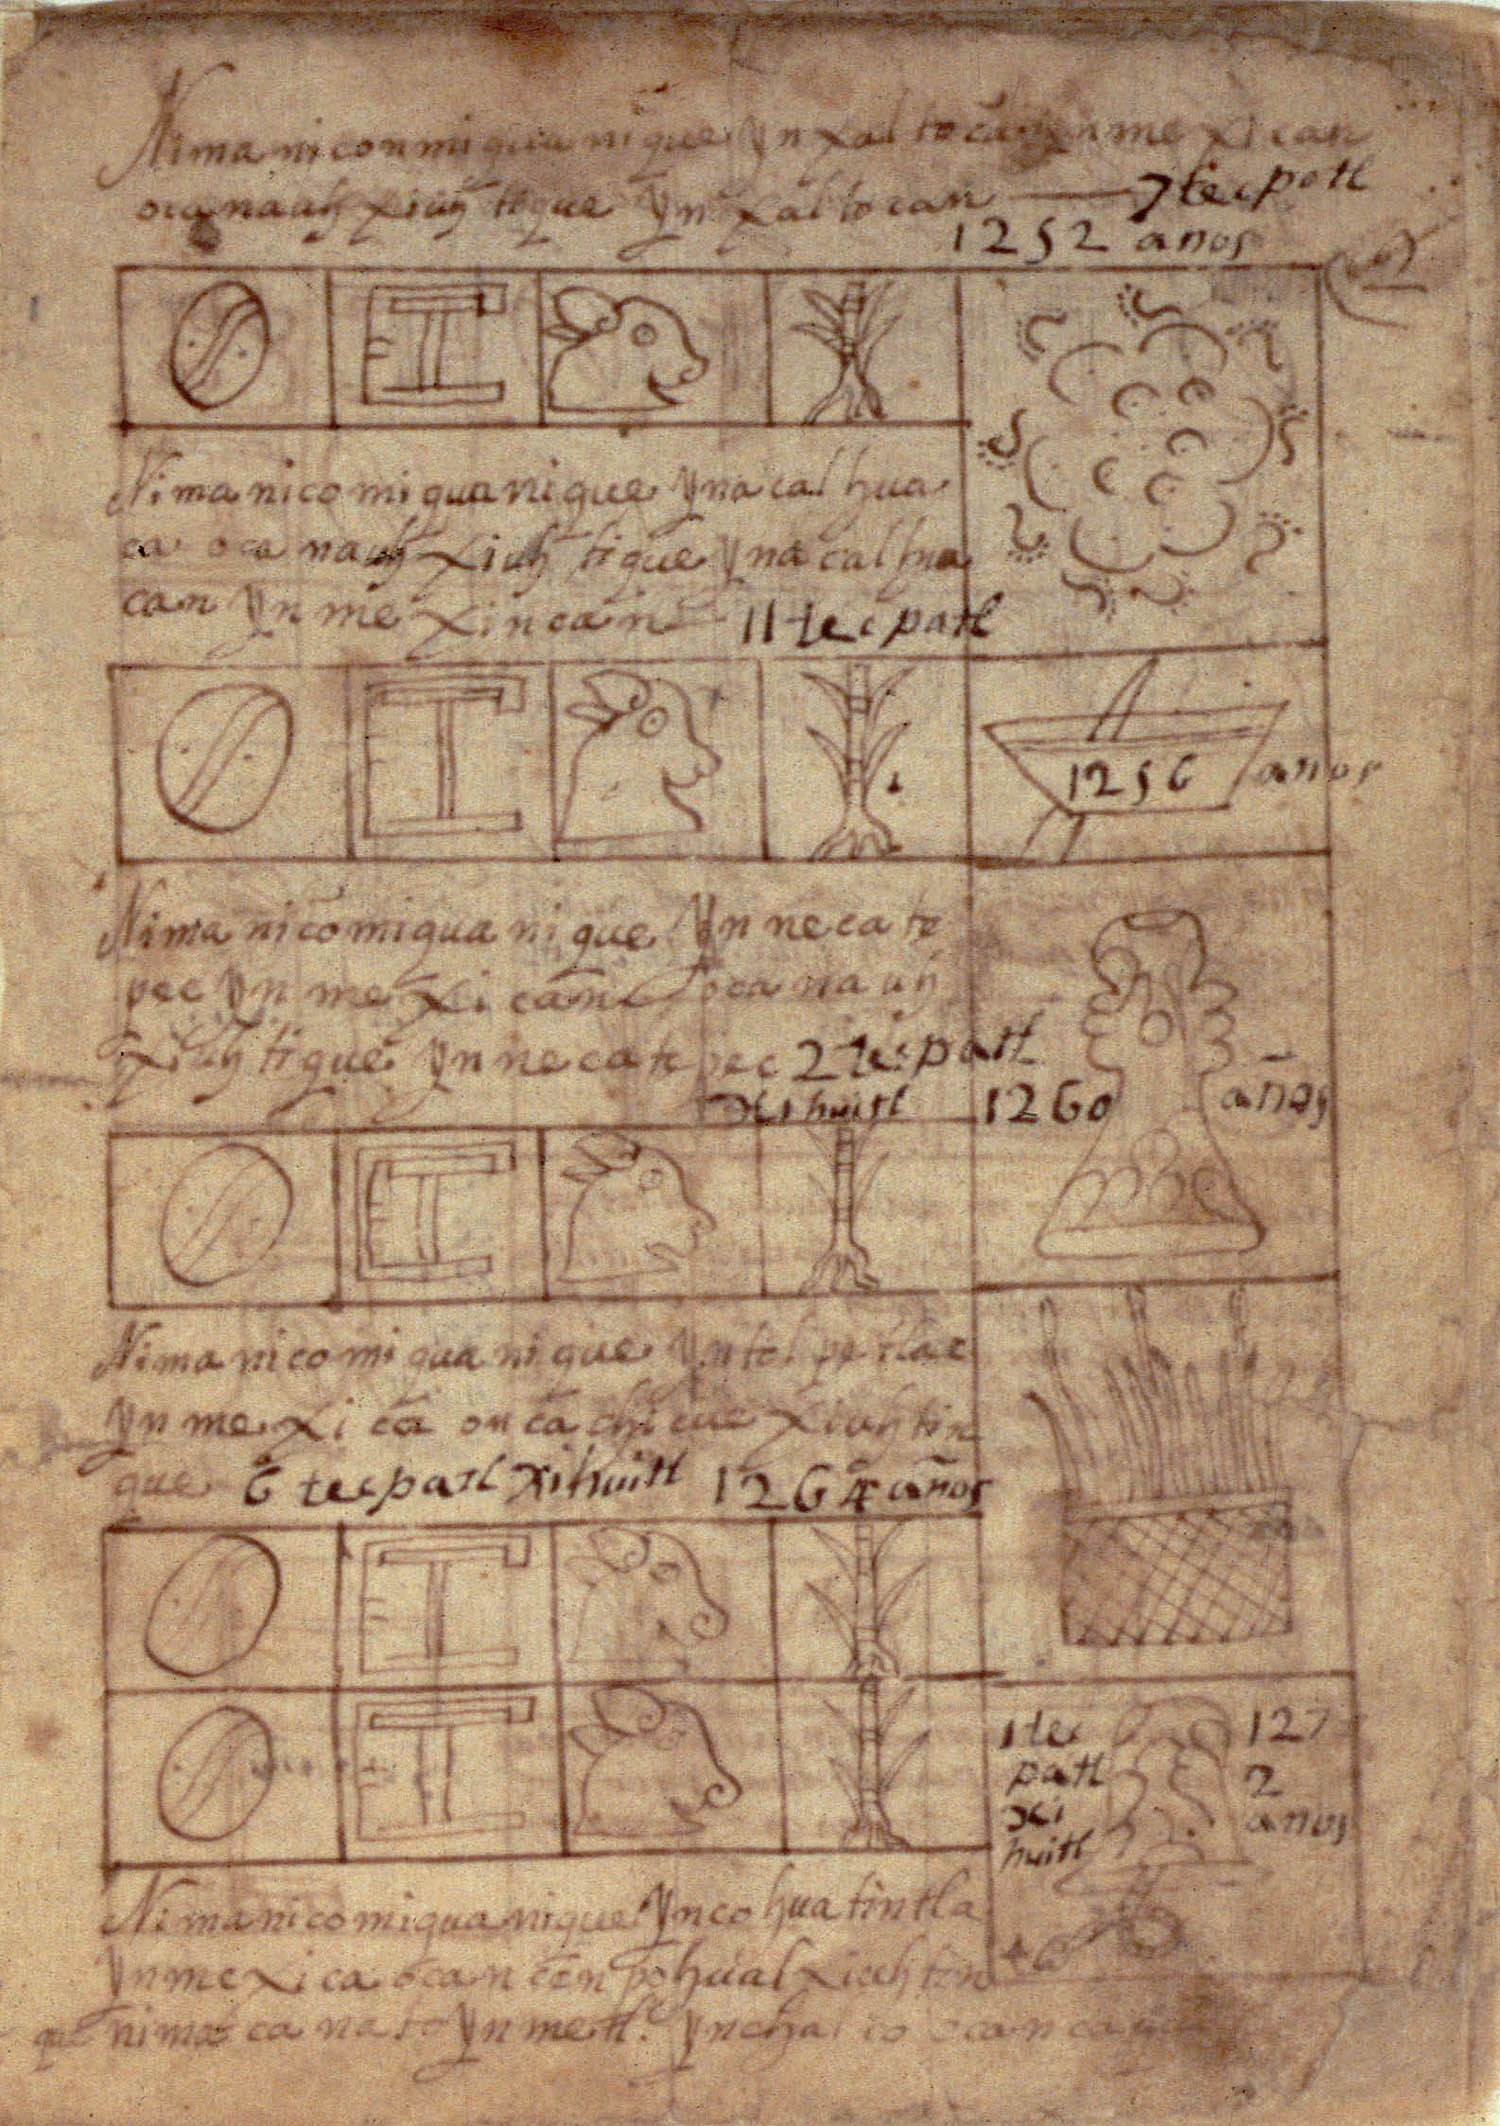 Nima niconmi quani que yn xal tocan yn me xi can
oca nauh xiuh tique yn xal to can 7 tecpatl
1252 anos
Nima nico mi qua ni que yn a cal hua
ca oca nauh xiuh tique yn a cal hua
can yn me xin can 11 tecpatl
1256 anos
Nima nicomiqua ni que yn ne ca te
pec yn me xi can oca na uh
xiuh tique yn ne ca te pec 2 tecpatl
xihuitl 1260 años
Nima nico mi qua ni que yn tol pe tlac
yn me xi ca on ca chi cue xiuh tin
que 6 tecpatl xihuitl 1264 años
1 tec
patl
xi
huitl
127
2
anos
Nima nicomiqua nique yn co hua tintla
yn me xi ca ocan cen pohual xiuh tin
que nima ca na to yn metl yn chal co ocan